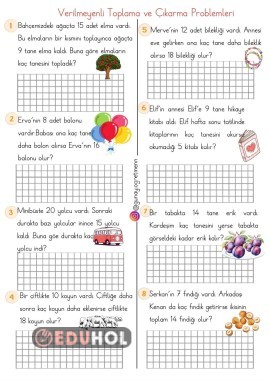 Verilmeyenli Toplama ve Çıkarma Problemleri
1 Bahçemizdeki ağaçta 15 adet elma vardı.
Bu elmaların bir kısmını toplayınca ağaçta
9 tane elma kaldı. Buna göre elmaların
kaç tanesini topladık?
2 Erva'nın 8 adet balonu
vardır. Babası ona kaç tane
daha balon alırsa Erva'nın 16
balonu olur?
3 Minibüste 20 yolcu vardı. Sonraki
durakta bazı yolcular inince 15 yolcu
kaldı. Buna göre durakta kaç
yolcu indi?
4 Bir çiftlikte 10 koyun vardı. Çiftliğe daha
sonra kaç koyun daha eklenirse çiftlikte
18 koyun olur?
5 Merve'nin 12 adet bilekliği vardı. Annesi
eve gelirken ona kaç tane daha bileklik
alırsa 18 bilekliği olur?
6 Elif'in annesi Elif'e 9 tane hikaye
kitabı aldı. Elif hafta sonu tatilinde
kitaplarının kaç tanesini okursa
okumadığı 5 kitabı kalır?
7 Bir tabakta 14 tane erik vardı.
Kardeşim kaç tanesini yerse tabakta
görseldeki kadar erik kalır?
8 Serkan'ın 7 fındığı vardı. Arkadaşı
Kenan da kaç fındık getirirse ikisinin
toplam 14 fındığı olur?
EDUHOL